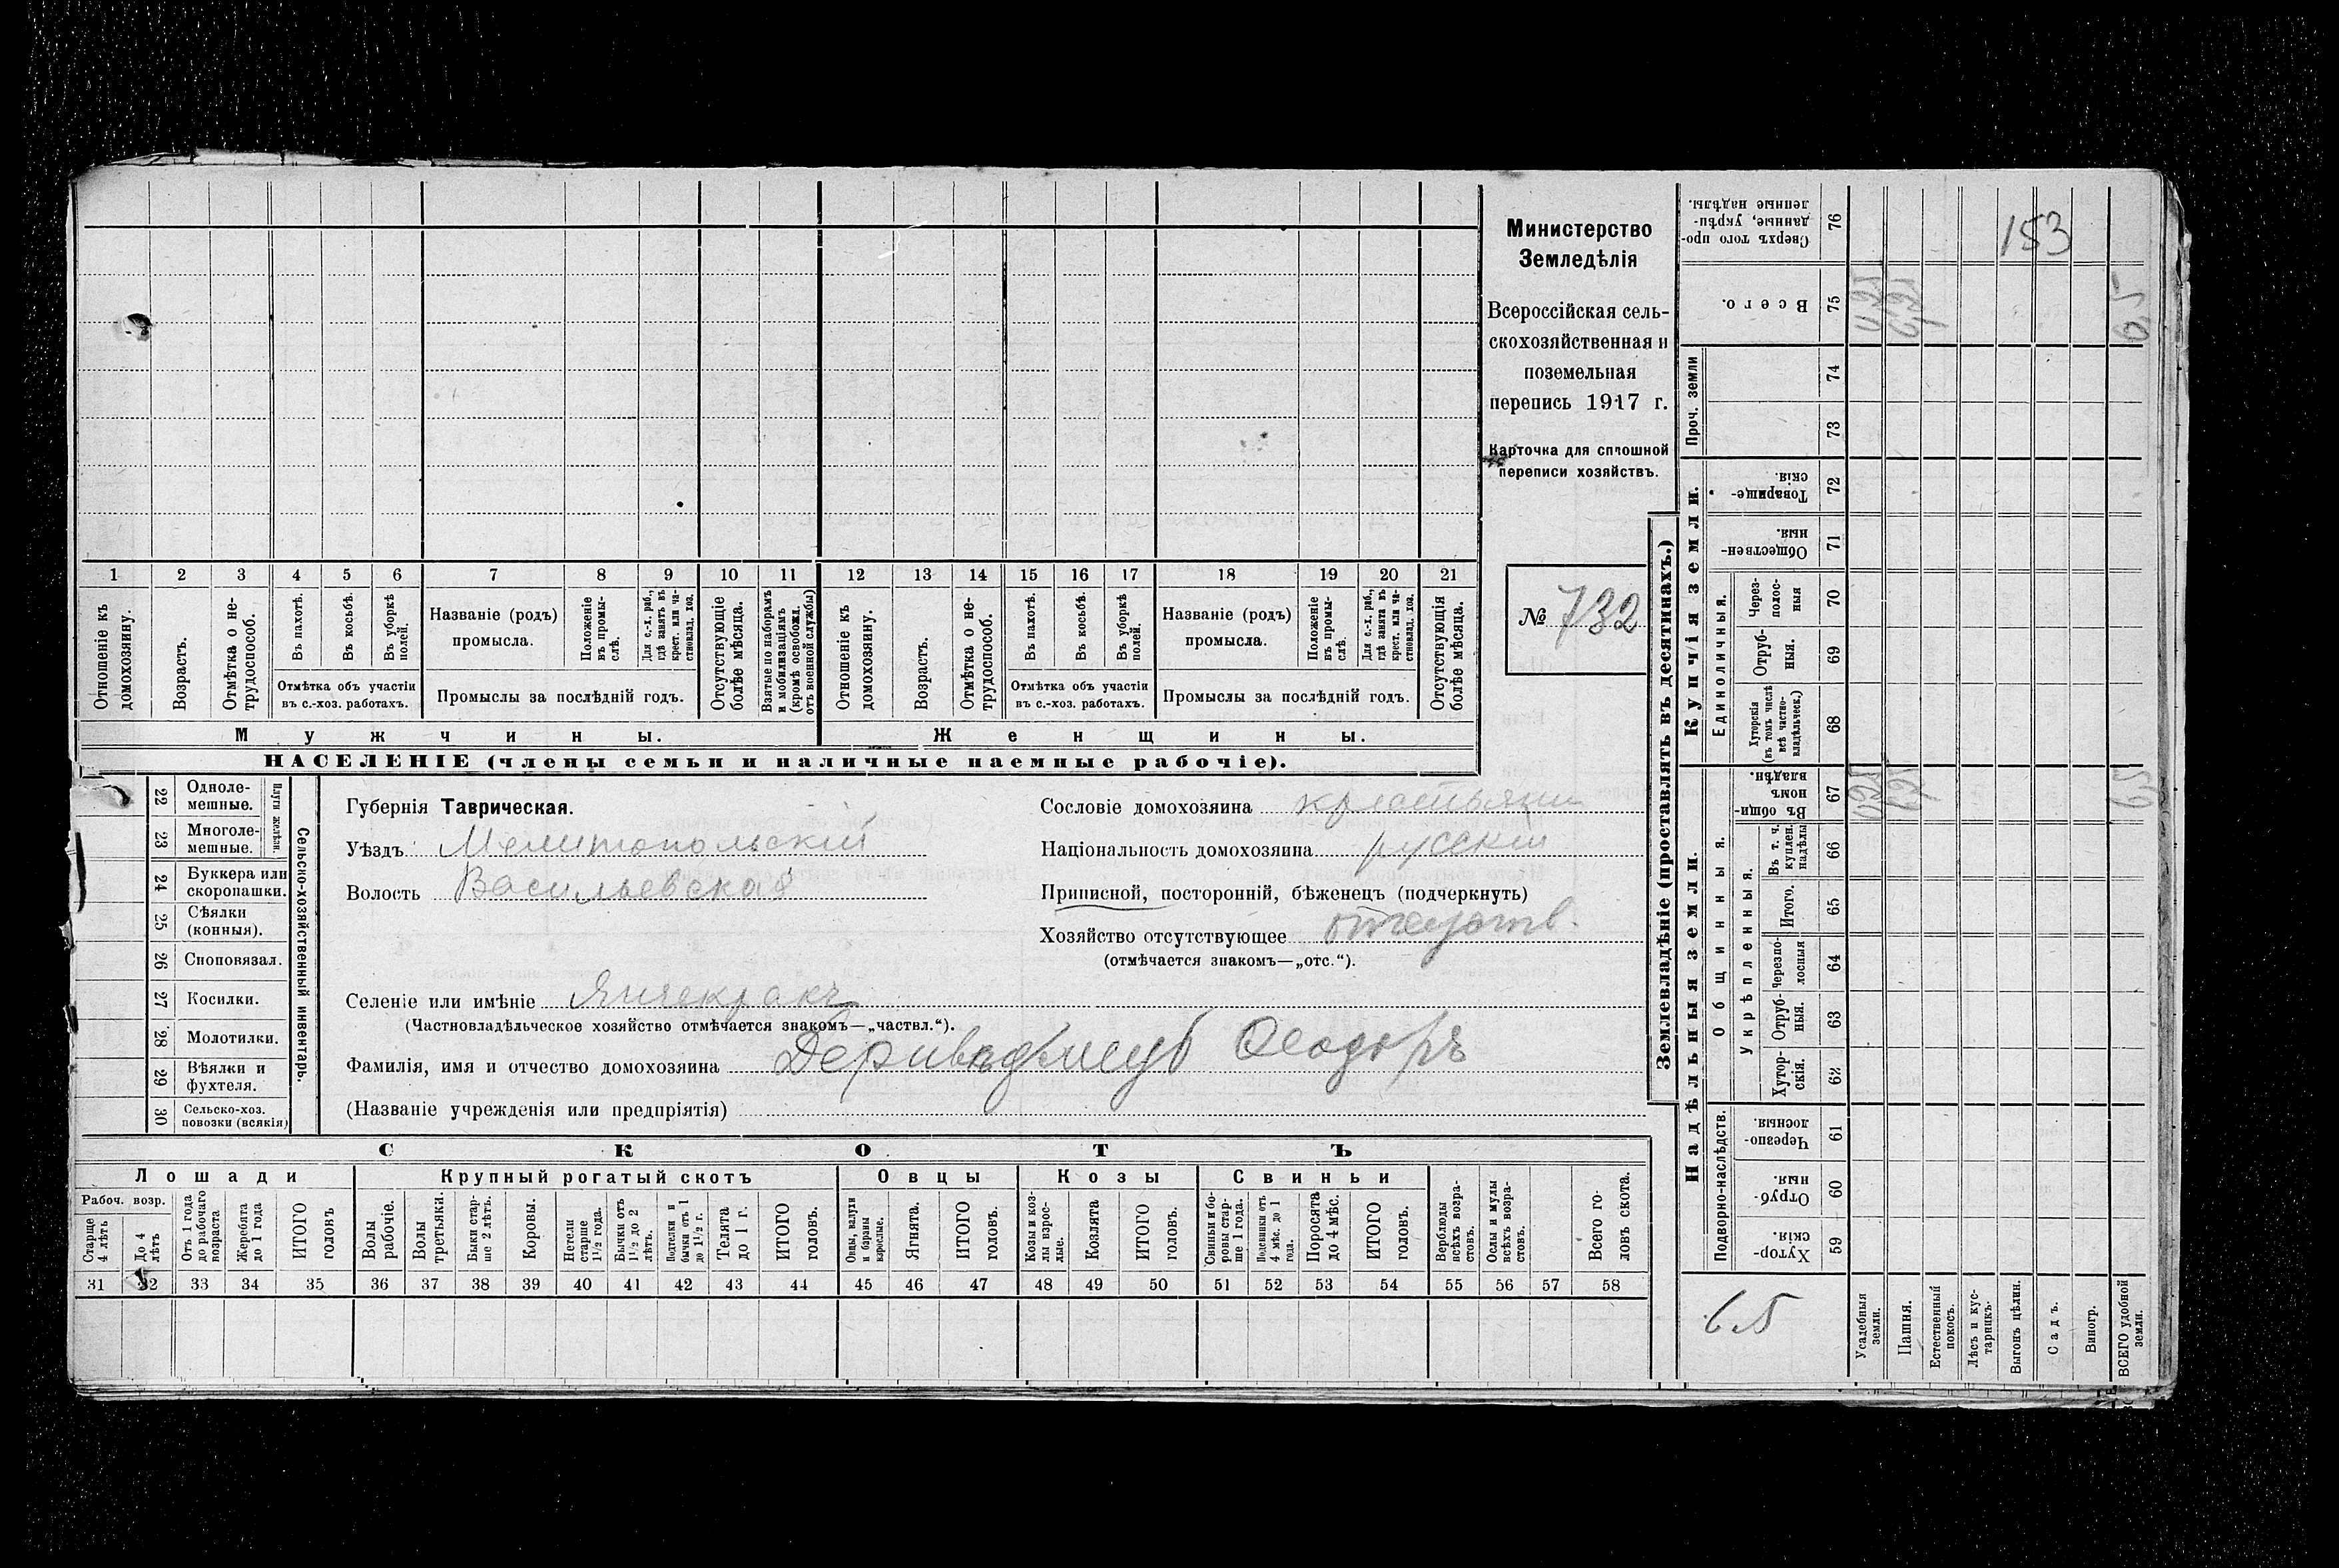 Министерство
Земледѣлія
Всероссійская сель-
скохозяйственная и
поземельная
перепись 1917 г.
Карточка для сплошной
переписи хозяйствъ.
№ 732
1 2 3 4 5 6 7 8 9 10 11 12 13 14 15 16 17 18 19 20 21
Отношеніе къ домохозяину.
Возрастъ.
Отмѣтка о не-трудоспособ.
Въ пахотѣ.
Въ косьбѣ.
Въ уборкѣ полей.
Отмѣтка объ участіи
въ с.-хоз. работахъ.
Названіе (родъ)
промысла.
Положеніе въ промы-слѣ.
Для с.-х. раб., гдѣ занятъ въ крест. или ча-стновлад. хоз.
Промыслы за послѣдній годъ.
Отсутствующіе болѣе мѣсяца.
Взятые по наборамъ и мобилизаціямъ (кромѣ освобожд. отъ военной службы)
Отношеніе къ домохозяину.
Возрастъ.
Отмѣтка о не-трудоспособ.
Въ пахотѣ.
Въ косьбѣ.
Въ уборкѣ полей.
Отмѣтка объ участіи
въ с.-хоз. работахъ.
Названіе (родъ)
промысла.
Положеніе въ промы-слѣ.
Для с.-х. раб., гдѣ занята въ крест. или ча-стновлад. хоз.
Промыслы за послѣдній годъ.
Отсутствующія болѣе мѣсяца.
Мужчины. Женщины.
НАСЕЛЕНІЕ (члены семьи и наличные наемные рабочіе).
Сельско-хозяйственный инвентарь.
Плуги желѣзн.
22 Одноле-мешные.
23 Многоле-мешные.
24 Буккера или скоропашки.
25 Сѣялки (конныя).
26 Сноповязал.
27 Косилки.
28 Молотилки.
29 Вѣялки и фухтеля.
30 Сельско-хоз. повозки (всякія)
Губернія Таврическая.
Уѣздъ Мелитопольскій
Волость Васильевская
Сословіе домохозяина крестьянин
Національность домохозяина русскій
Приписной, посторонній, бѣженецъ (подчеркнуть)
Хозяйство отсутствующее отсутств.
(отмѣчается знакомъ—„отс.“).
Селеніе или имѣніе Янчекракъ
(Частновладѣльческое хозяйство отмѣчается знакомъ—„частвл.“).
Фамилія, имя и отчество домохозяина Феодоръ
(Названіе учрежденія или предпріятія)
СКОТЪ
Лошади Крупный рогатый скотъ Овцы Козы Свиньи
Рабоч. возр.
Старше 4 лѣтъ
До 4 лѣтъ
Отъ 1 года до рабочаго возраста
Жеребята до 1 года
ИТОГО головъ
Волы рабочіе.
Волы третьяки.
Быки стар-ше 2 лѣтъ.
Коровы.
Нетели старше 1½ года.
Бычки отъ 1½ до 2 лѣтъ.
Подтелки и бычки отъ 1 до 1½ г.
Телята до 1 г.
ИТОГО головъ.
Овцы, валухи и бараны взрослые.
Ягнята.
ИТОГО головъ.
Козы и коз-лы взрос-лые.
Козлята
ИТОГО головъ.
Свиньи и бо-ровы стар-ше 1 года.
Подсвинки отъ 4 мѣс. до 1 года.
Поросята до 4 мѣс.
ИТОГО головъ.
Верблюды всѣхъ возра-стовъ.
Ослы и мулы всѣхъ возра-стовъ.
Всего го-ловъ скота.
31 32 33 34 35 36 37 38 39 40 41 42 43 44 45 46 47 48 49 50 51 52 53 54 55 56 57 58
Землевладѣніе (проставлять въ десятинахъ.)
Надѣльныя земли. Купчія земли. Проч. земли
Подворно-наслѣдств.
Общинныя.
Укрѣпленныя.
Единоличныя.
Сверхъ того про-данные, укрѣп-ленные надѣлы. 76
Всего. 75
74
73
Товарище-скія 72
Обществен-ныя. 71
Через-полос-ныя 70
Отруб-ныя. 69
Хуторскія (въ томъ числѣ всѣ частно-владѣльческ.) 68
Въ общи-номъ владѣн. 67
Въ т. ч. куплен. надѣлы 66
Итого. 65
Черезпо-лосныя 64
Отруб-ныя. 63
Хутор-скія. 62
Черезпо-лосныя 61
Отруб-ныя. 60
Хутор-скія. 59
Усадебныя земли.
Пашня.
Естественный покосъ.
Лѣсъ и кус-тарникъ.
Выгонъ цѣлин.
Садъ.
Виногр.
ВСЕГО удобной земли.
153
6,5
6,5
6.5